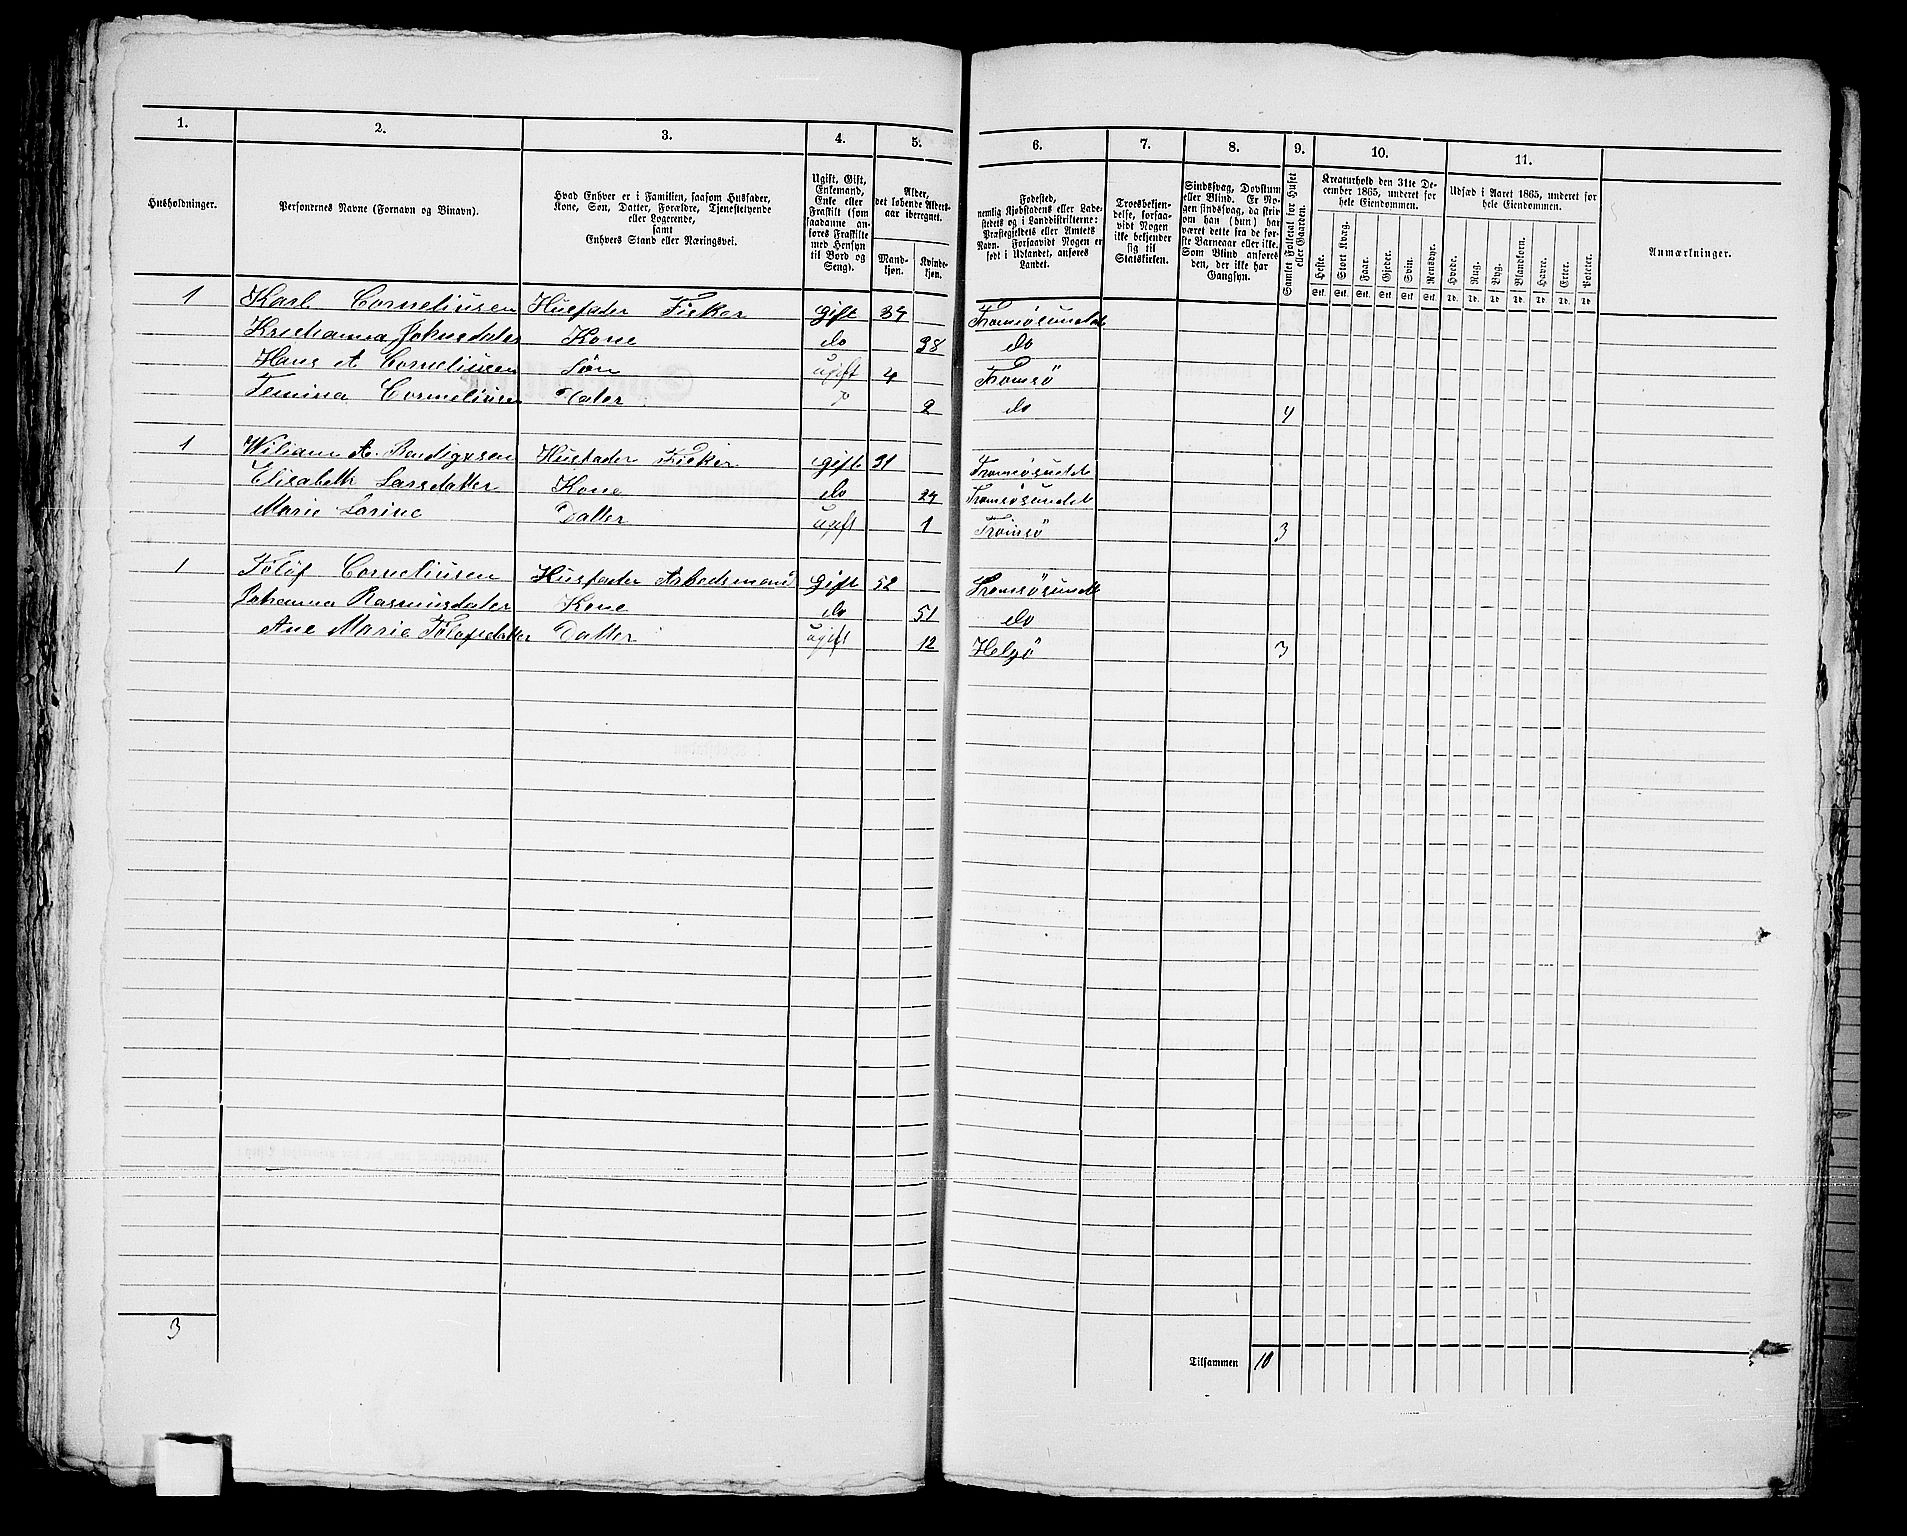 1. 2. 3. 4. 5. 6. 7. 8. 9. 10. 11.
Husholdninger.
Personernes Navne (Fornavn og Binavn).
Hvad Enhver er i Familien, saasom Husfader,
Kone, Søn, Datter, Forældre, Tjenestetyende
eller Logerende,
samt
Enhvers Stand eller Næringsvei.
Ugift, Gift,
Enkemand,
Enke eller
Fraskilt (som
saadanne an-
føres Fraskilte
med Hensyn
til Bord og
Seng).
Alder,
det løbende Alders-
aar iberegnet.
Mand-
kjøn.
Kvinde-
kjøn.
Fødested,
nemlig Kjøbstadens eller Lade-
stedets og i Landdistrikterne:
Præstegjeldets eller Amtets
Navn. Forsaavidt Nogen er
født i Udlandet, anføres
Landet.
Troesbekjen-
delse, forsaa-
vidt Nogen
ikke bekjender
sig til
Statskirken.
Sindssvag, Døvstum
eller Blind. Er No-
gen sindssvag, da skri-
ves om han (hun) har
været dette fra de før-
ste Barneaar eller ikke.
Som Blind anføres
den, der ikke har
Gangsyn.
Samlet Folketal for Huset
eller Gaarden.
Kreaturhold den 31te De-
cember 1865, underet for
hele Eiendommen.
Heste. Stort Kvæg. Faar. Gjeder. Svin. Rensdyr.
Stk. Stk. Stk. Stk. Stk. Stk.
Udsæd i Aaret 1865, underet for
hele Eiendommen.
Hvede. Rug. Byg. Blandkorn. Havre. Erter. Poteter.
Td. Td. Td. Td. Td. Td. Td.
Anmærkninger.
1 Karl Corneliusen Husfader Fisker gift 34 Tromsøsundet
Kristianna Johnsdater Kone do 38 do
Hans A Corneliusen Søn ugift 4 Tromsø
Corneliusen Dater do 2 do 4
1 Wiliam A. Husfader Fisker gift 31 Tromsøsundet
Elisabeth Larsdatter Kone do 24 Tromsøsundet
Marie Lorine Datter ugift 1 Tromsø 3
1 Tolof Corneliusen Husfader Arbedsmand gift 52 Tromsøsundet
Johanna Rasmusdater Kone do 51 do
Ane Marie Tolofsdatter Datter ugift 12 Helgø 3
3
Tilsammen 10